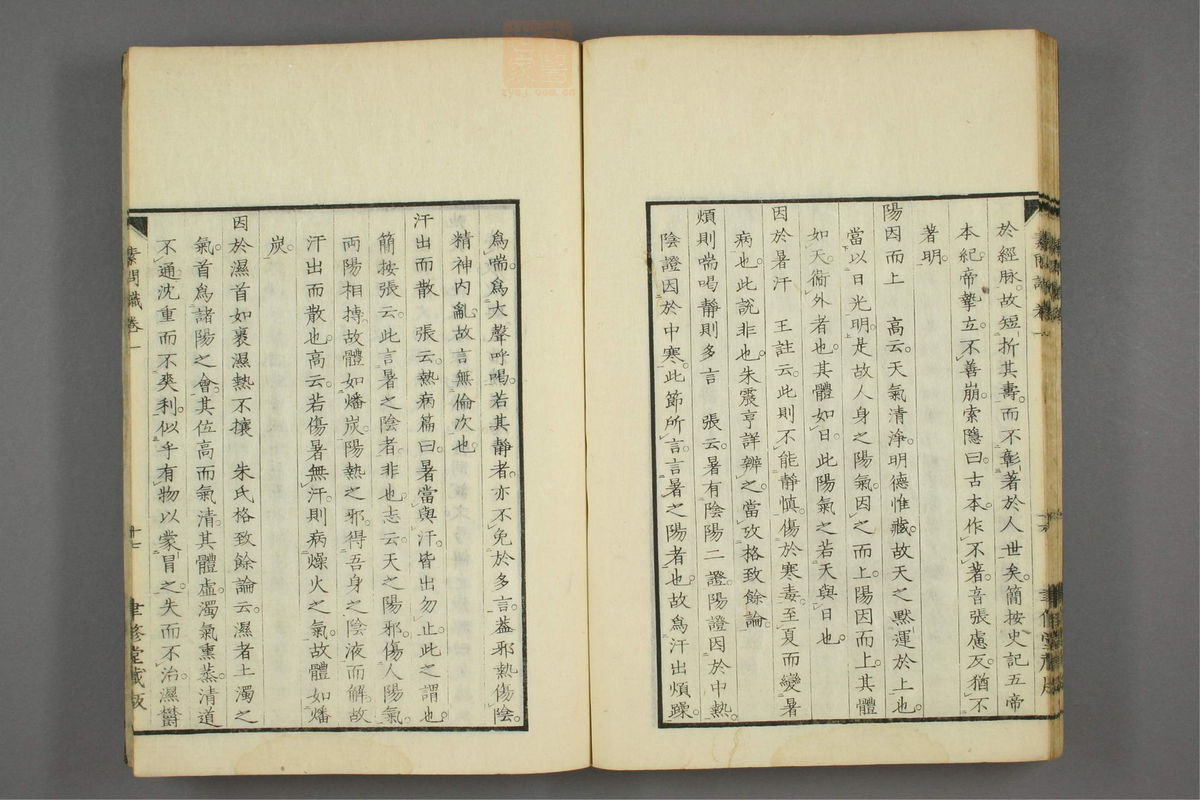 於經脉。故短折其壽。而不彰著於人世矣。簡按史記五帝
本紀。帝摯立。不善崩。索隱曰。古本作不著。音張慮反。猶不
著明。
陽因而上　高云。天氣清淨。明德惟藏。故天之默運於上也。
當以日光明。是故人身之陽氣。因之而上。陽因而上。其體
如天。衞外者也。其體如日。此陽氣之若天與日也。
因於暑汗　王註云。此則不能靜慎。傷於寒毒。至夏而變暑
病也。此說非也。朱震亨詳辨之。當攷格致餘論。
煩則喘喝靜則多言　張云。暑有陰陽二證。陽證因於中熱。
陰證因於中寒。此節所言。言暑之陽者也。故爲汗出煩躁。
爲喘。爲大聲呼喝。若其靜者。亦不免於多言。蓋邪熱傷陰。
精神內亂。故言無倫次也。
汗出而散　張云。熱病篇曰。暑當與汗皆出勿止。此之謂也。
簡按張云。此言暑之陰者。非也。志云。天之陽邪。傷人陽氣。
両陽相搏。故體如燔炭。陽熱之邪。得吾身之陰液而解。故
汗出而散也。高云。若傷暑無汗。則病燥火之氣。故體如燔
炭。
因於濕首如裹濕熱不攘　朱氏格致餘論云。濕者土濁之
氣。首爲諸陽之會。其位高而氣清。其體虛。濁氣熏蒸。清道
不通。沈重而不爽利。似乎有物以蒙冒之。失而不治。濕鬱
素問識卷一
十七
聿修堂藏版